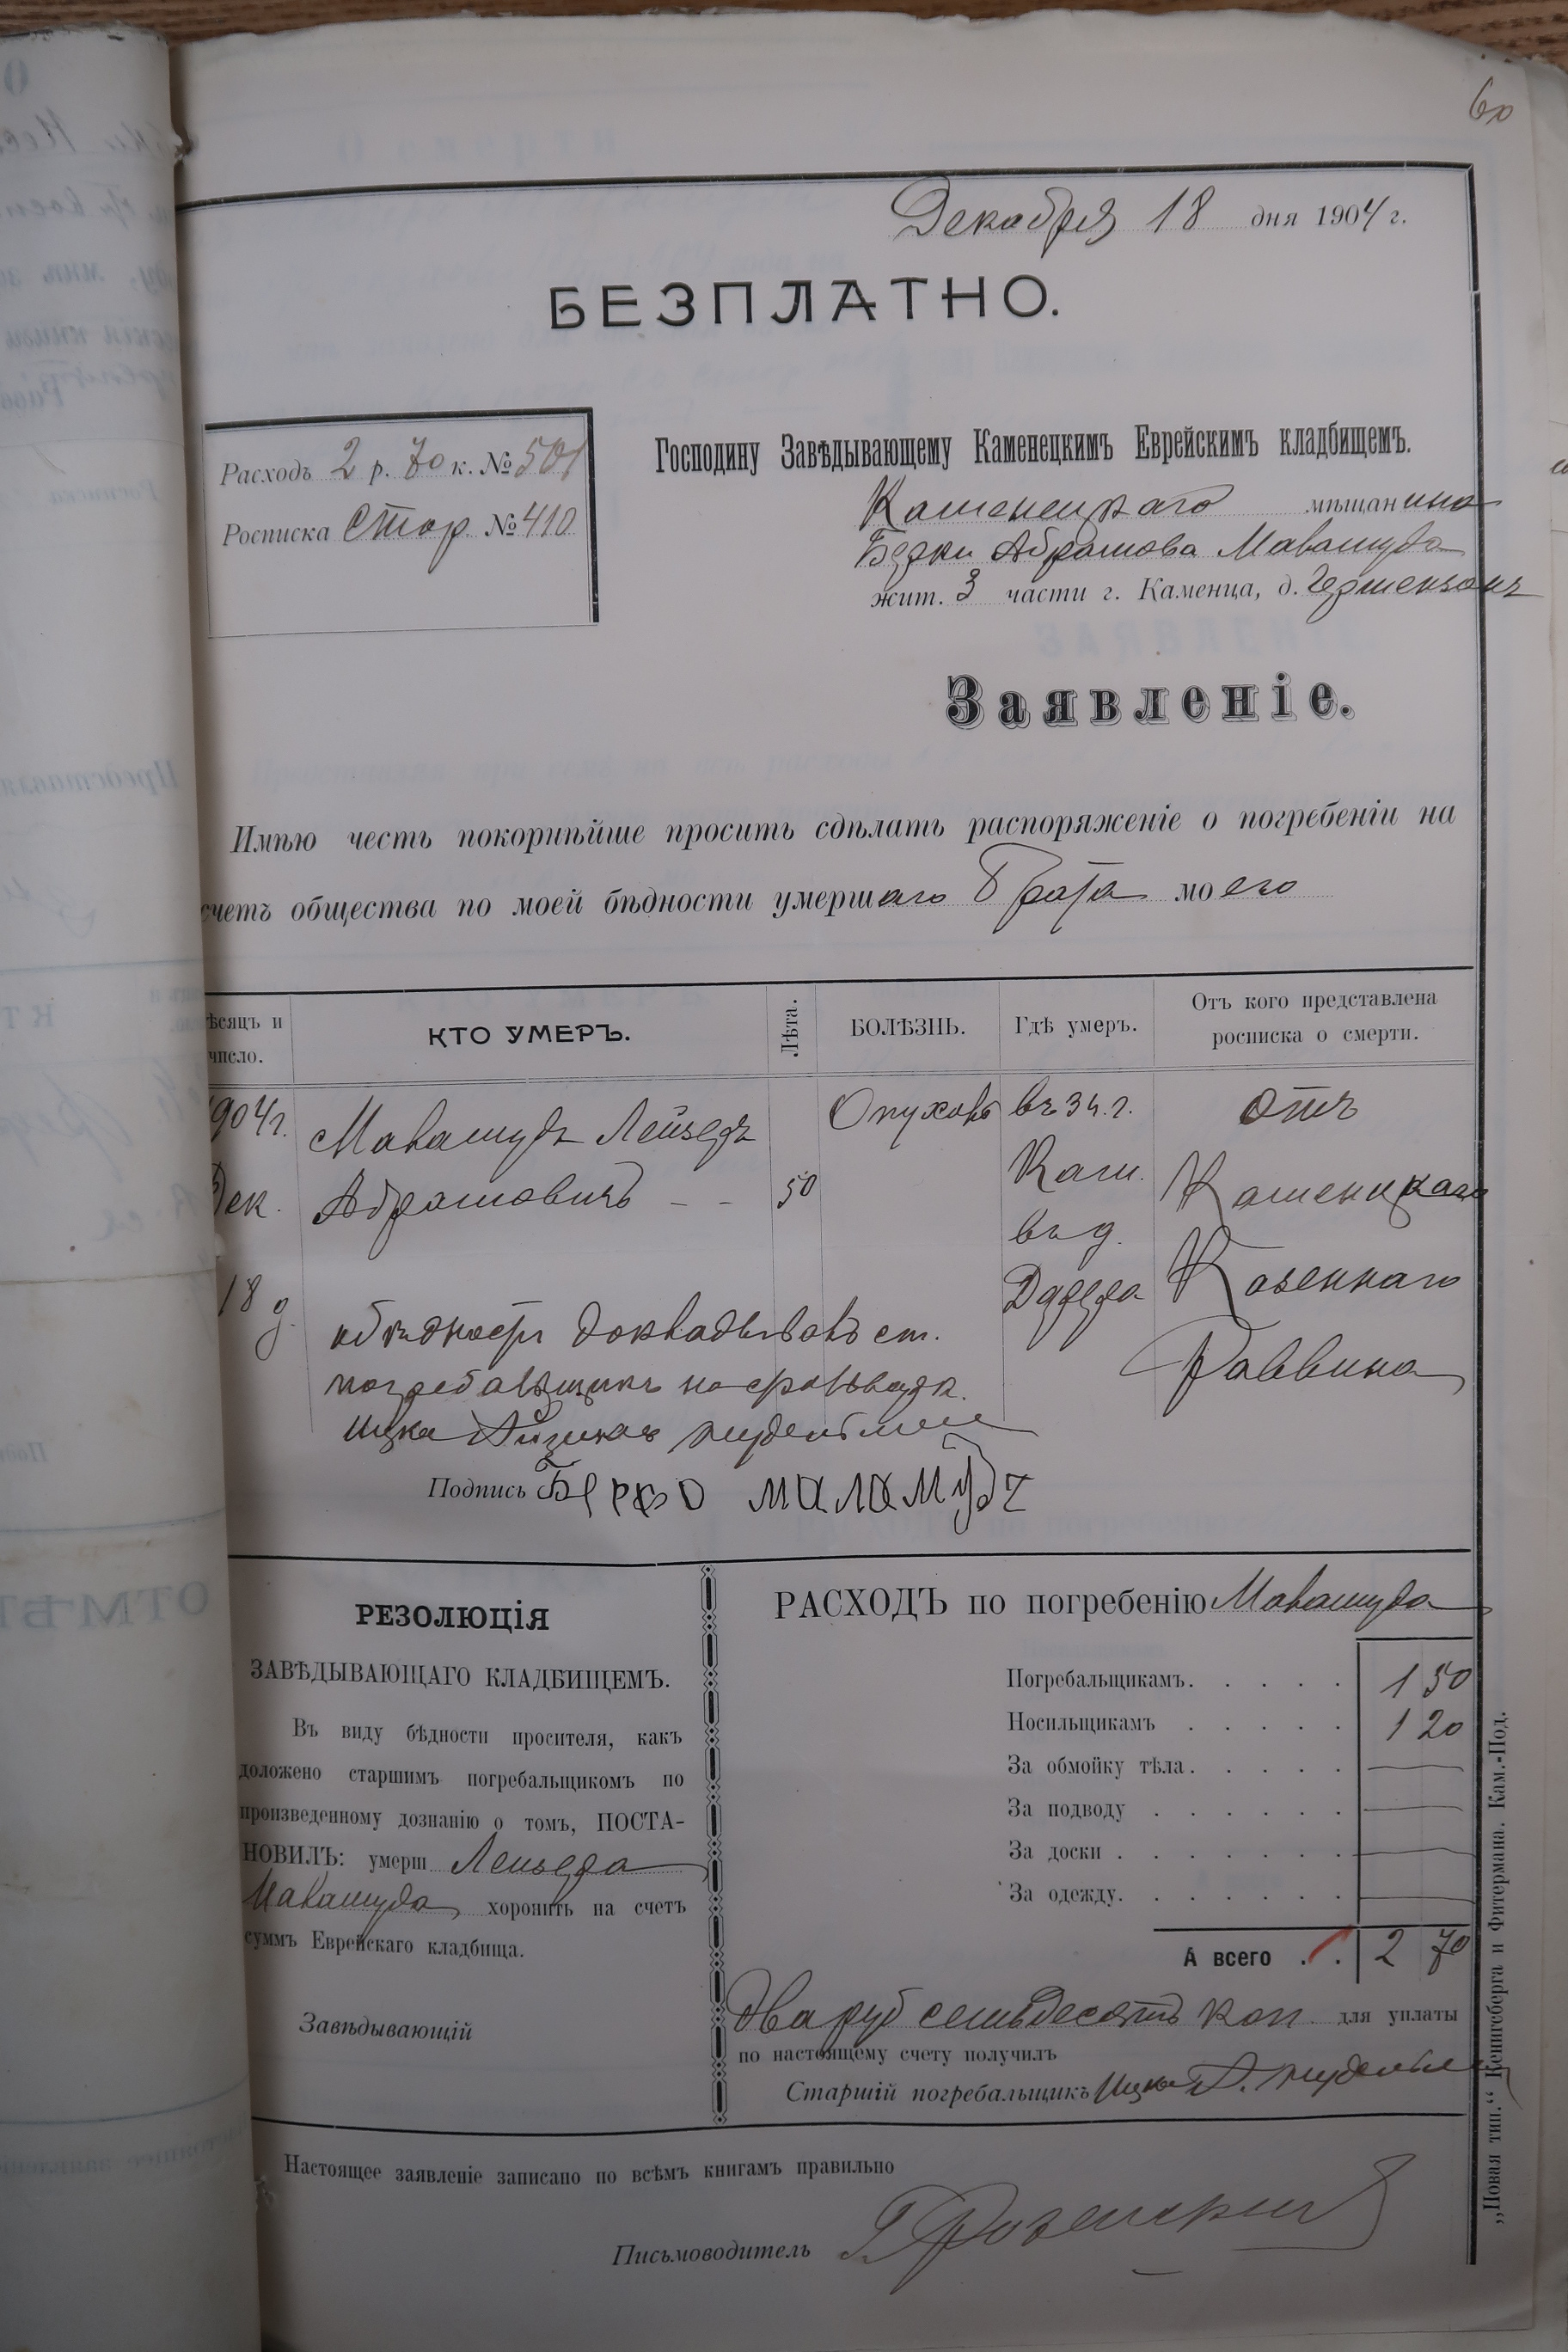 60
Декабря 18 дня 1904 г.
БЕЗПЛАТНО.
Расходъ 2 р. 70 к. № 501
Росписка Стор. № 410
Господину Завѣдывающему Каменецкимъ Еврейскимъ кладбищемъ.
Каменецкаго мѣщанина
Берки Абрамова Маламуда
жит. 3 части г. Каменца, д. Гершензонъ
Заявленіе.
Имѣю честь покорнѣйше просить сдѣлать распоряженіе о погребеніи на
счетъ общества по моей бѣдности умершаго брата моего
ѣсяцъ и число.
КТО УМЕРЪ.
Лѣта.
БОЛѢЗНЬ.
Гдѣ умеръ.
Отъ кого представлена росписка о смерти.
904 г. Маламудъ Лейзеръ Опухоль въ 3 ч. г. отъ
Дек. Абрамовичъ – – 50 Кам. Каменецкаго
въ д. Казеннаго
18 д. Раввина
о бѣдности докладывалъ ст.
погребальщикъ
Ицка
Подпись Берко маламудъ
РЕЗОЛЮЦІЯ
ЗАВѢДЫВАЮЩАГО КЛАДБИЩЕМЪ.
Въ виду бѣдности просителя, какъ
доложено старшимъ погребальщикомъ по
произведенному дознанію о томъ, ПОСТА-
НОВИЛЪ: умерш Лейзера
Маламуда хоронить на счетъ
суммъ Еврейскаго кладбища.
Завѣдывающій
РАСХОДЪ по погребенію Маламуда
Погребальщикамъ. . . . . 1 50
Носильщикамъ . . . . . 1 20
За обмойку тѣла. . . . . —
За подводу . . . . . . —
За доски . . . . . . . —
За одежду. . . . . . . —
А всего . . 2 70
Два руб семьдесятъ коп. для уплаты
по настоящему счету получилъ
Старшій погребальщикъ Ицка А.
Настоящее заявленіе записано по всѣмъ книгамъ правильно
Письмоводитель
„Новая тип.“ Кенигсберга и Фитермана. Кам.-Под.